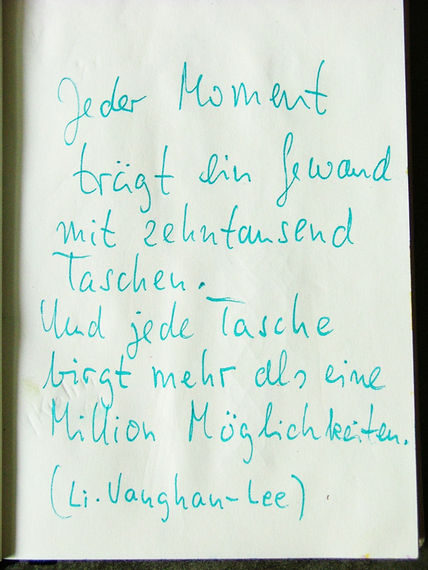 Jeder Moment
trägt ein Gewand
mit zehntausend
Taschen.
Und jede Tasche
birgt mehr als eine
Million Möglichkeiten.
(Li. Vaughan-Lee)